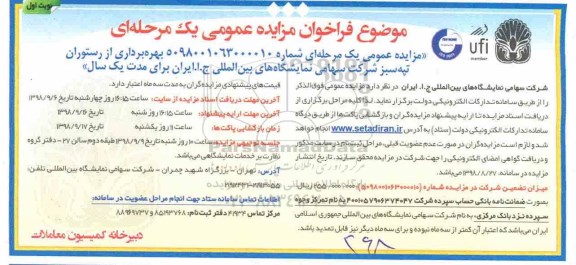 نوبت اول
موضوع فراخوان مزایده عمومی یک مرحله‌ای
«مزایده عمومی یک مرحله‌ای شماره ۵۰۹۸۰۰۱۰۶۳۰۰۰۰۱۰ بهره‌برداری از رستوران
تپه‌سبز شرکت سهامی نمایشگاه‌های بین‌المللی ج.ا.ایران برای مدت یک سال»
ufi
شرکت سهامی نمایشگاه‌های بین‌المللی ج.ا. ایران در نظر دارد مزایده عمومی فوق‌الذکر
را از طریق سامانه تدارکات الکترونیکی دولت برگزار نماید. کلیه مراحل برگزاری از
دریافت اسناد مزایده تا ارایه پیشنهاد مزایده‌گران و بازگشایی پاکت‌ها از طریق درگاه
سامانه تدارکات الکترونیکی دولت (ستاد) به آدرس www.setadiran.ir انجام خواهد
شد و لازم است مزایده‌گران در صورت عدم عضویت قبلی، مراحل ثبت‌نام در سایت مذکور
و دریافت گواهی امضای الکترونیکی را جهت شرکت در مزایده محقق سازند. تاریخ انتشار
مزایده در سامانه ۱۳۹۸/۸/۲۷ می‌باشد.
میزان تضمین شرکت در مزایده شماره (۵۰۹۸۰۰۱۰۶۳۰۰۰۰۱۰)
بصورت ضمانت‌نامه بانکی حساب سپرده شرکت به نام تمرکز وجوه
سپرده نزد بانک مرکزی، به نام شرکت سهامی نمایشگاه‌های بین‌المللی جمهوری اسلامی
ایران می‌باشد که اعتبار آن کمتر از سه ماه نبوده و برای سه ماه دیگر نیز قابل تمدید باشد.
قیمت‌های پیشنهادی مزایده‌گران به مدت سه ماه اعتبار دارد.
آخرین مهلت دریافت اسناد مزایده از سایت: ساعت ۱۶:۱۵ روز چهارشنبه تاریخ ۱۳۹۸/۹/۶
آخرین مهلت ارایه پیشنهاد: ساعت ۱۶:۱۵ روز شنبه تاریخ ۱۳۹۸/۹/۱۶
زمان بازگشایی پاکت‌ها: ساعت ۱۱ روز یکشنبه تاریخ ۱۳۹۸/۹/۱۷
جلسه توجیهی مزایده: ساعت ۱۰ روز شنبه تاریخ ۱۳۹۸/۹/۹ طبقه دوم سالن ۲۷ - دفتر گروه
نظارت بر خدمات نمایشگاهی می‌باشد.
آدرس: تهران - بزرگراه شهید چمران - شرکت سهامی نمایشگاه‌های بین‌المللی تلفن:
اطلاعات تماس سامانه ستاد جهت انجام مراحل عضویت در سامانه:
مرکز تماس ۴۱۹۳۴ دفتر ثبت‌نام: ۸۵۱۹۳۷۶۸ و ۸۸۹۶۹۷۳۷
دبیرخانه کمیسیون معاملات
ParsNamadData